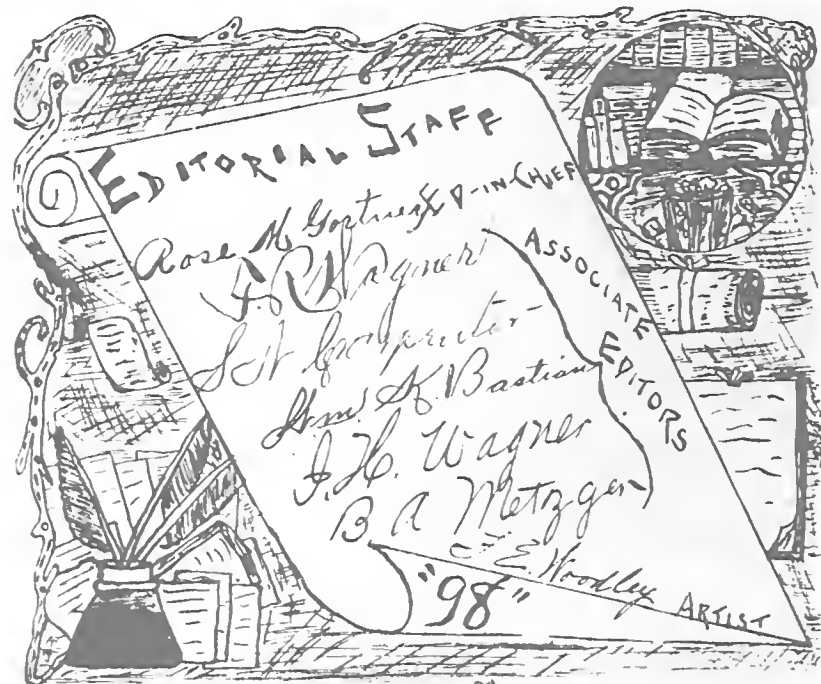 EDITORIAL STAFF
Rose M Gortner ED-IN-CHIEF
Wagner
S N Carpenter
Wm. K. Bastian
J. H. Wagner
B A Metzger
ASSOCIATE EDITORS
E. Woodley ARTIST
"98"